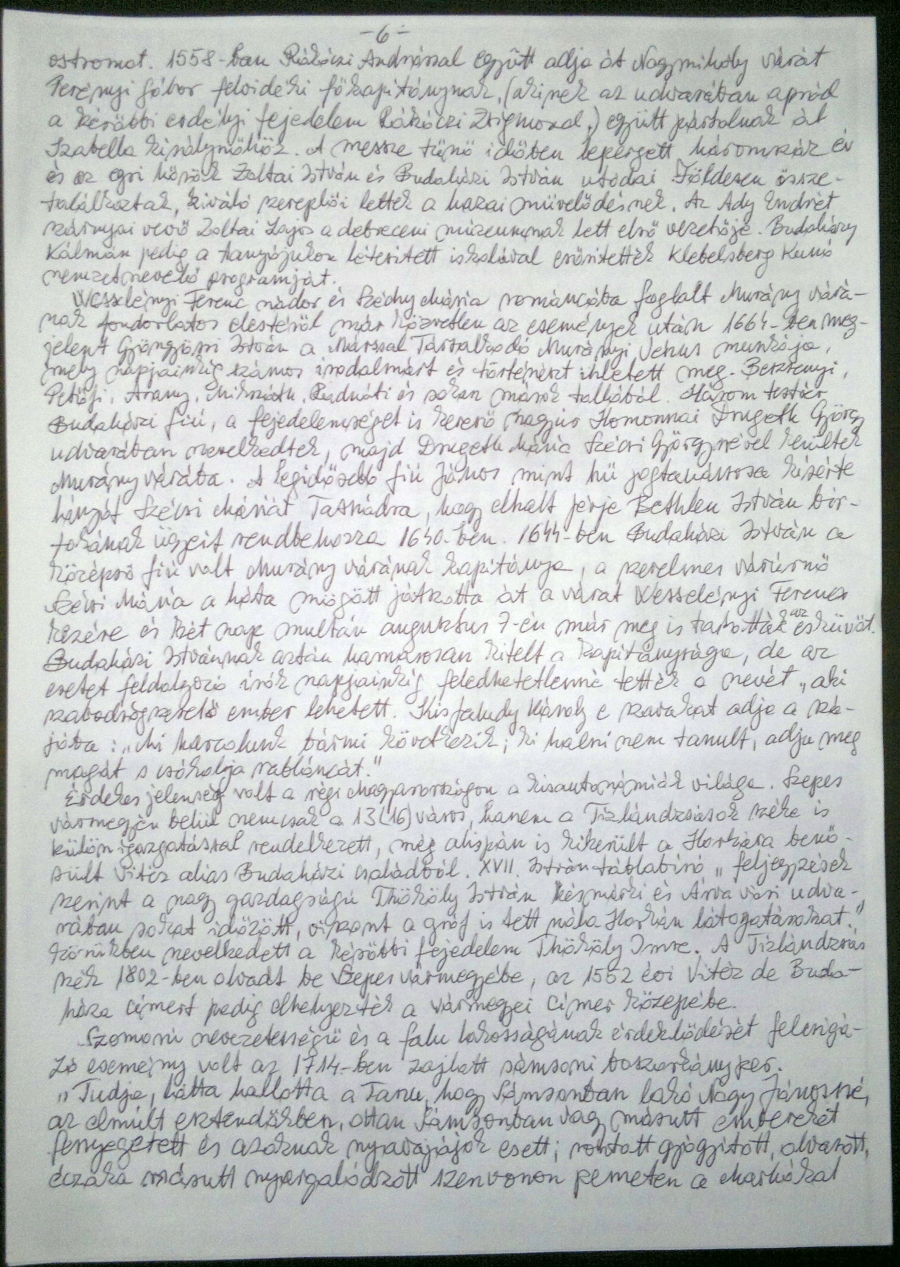 -6-
ostromot. 1558-ban Rákóczi Andrással együtt adja át Nagymihály várát
Perényi Gábor felvidéki főkapitánynak, (akinek az udvarában apród
a későbbi erdélyi fejedelem Rákóczi Zsigmond,) együtt pártolnak át
Izabella királynőhöz. A messze tűnő időben lepergett háromszáz év
és az egri hősök Zoltai István és Budaházi István utódai Földesen össze-
találkoztak, kiváló szereplői lettek a hazai művelődésnek. Az Ady Endrét
szárnyai vevő Zoltai Lajos a debreceni múzeumnak lett első vezetője. Budaházy
Kálmán pedig a tanyájukon létesített iskolával erősítették Klebelsberg Kunó
nemzetnevelő programját.
Wesselényi Ferenc nádor és Széchy Mária románcába foglalt Murány várá-
nak fondorlatos elestéről már közvetlen az események után 1664-ben meg-
jelent Gyöngyösi István a Márssal Társalkodó Murányi Vénus munkája,
mely napjainkig számos irodalmárt és történészt ihletett meg. Berzsenyi,
Petőfi, Arany, Mikszáth, Radnóti és sokan mások tollából. Három testvér
Budaházi fiú, a fejedelemséget is kereső magyar Homonnai Drugeth György
udvarában nevelkedtek, majd Drugeth Mária Szécsi Györgynével kerültek
Murány várába. A legidősebb fiú János mint hű jogtanácsosa kísérte
lányát Szécsi Máriát Tasnádra, hogy elhalt férje Bethlen István bir-
tokának ügyeit rendbehozza 1640-ben. 1644-ben Budaházi István a
középső fiú volt Murány várának kapitánya, a szerelmes várúrnő
Szécsi Mária a háta mögött játszotta át a várat Wesselényi Ferenc
kezére és két nap multán augusztus 7-én már meg is tartották az esküvőt.
Budaházi Istvánnak aztán hamarosan kitelt a kapitánysága, de az
esetet feldolgozó írók napjainkig feledhetetlenné tették a nevét „aki
szabadságszerető ember lehetett. Kisfaludy Károly e szavakat adja a szá-
jába: „Mi harcolunk bármi következik; ki halni nem tanult, adja meg
magát s csókolja rabláncát."
Érdekes jelenség volt a régi Magyarországon a kisautonómiák világa. Szepes
vármegyén belül nemcsak a 13(16) város, hanem a Tízlándzsások széke is
külön igazgatással rendelkezett, még alispán is kikerült a Horkára benő-
sült Vitéz alias Budaházi családból. XVII. István táblabíró „feljegyzések
szerint a nagy gazdagságú Thököly István késmárki és Árva vári udva-
rában sokat időzött, viszont a gróf is tett nála Horkán látogatásokat."
Körükben nevelkedett a későbbi fejedelem Thököly Imre. A Tízlándzsás
szék 1802-ben olvadt be Szepes vármegyébe, az 1552 évi Vitéz de Buda-
háza címert pedig elhelyezték a vármegyei címer közepébe.
Szomorú nevezetességű és a falu lakosságának érdeklődését felcsigá-
zó esemény volt az 1714-ben zajlott sámsoni boszorkányper.
„Tudja, látta hallotta a Tanu, hogy Sámsonban lakó Nagy Jánosné,
az elmúlt esztendőkben, ottan Sámsonban vagy másutt embereket
fenyegetett és azoknak nyavajájok esett; rontott gyógyított, olvasott,
éczaka másutt nyargalódzott szenvonon pemeten a Marhákat